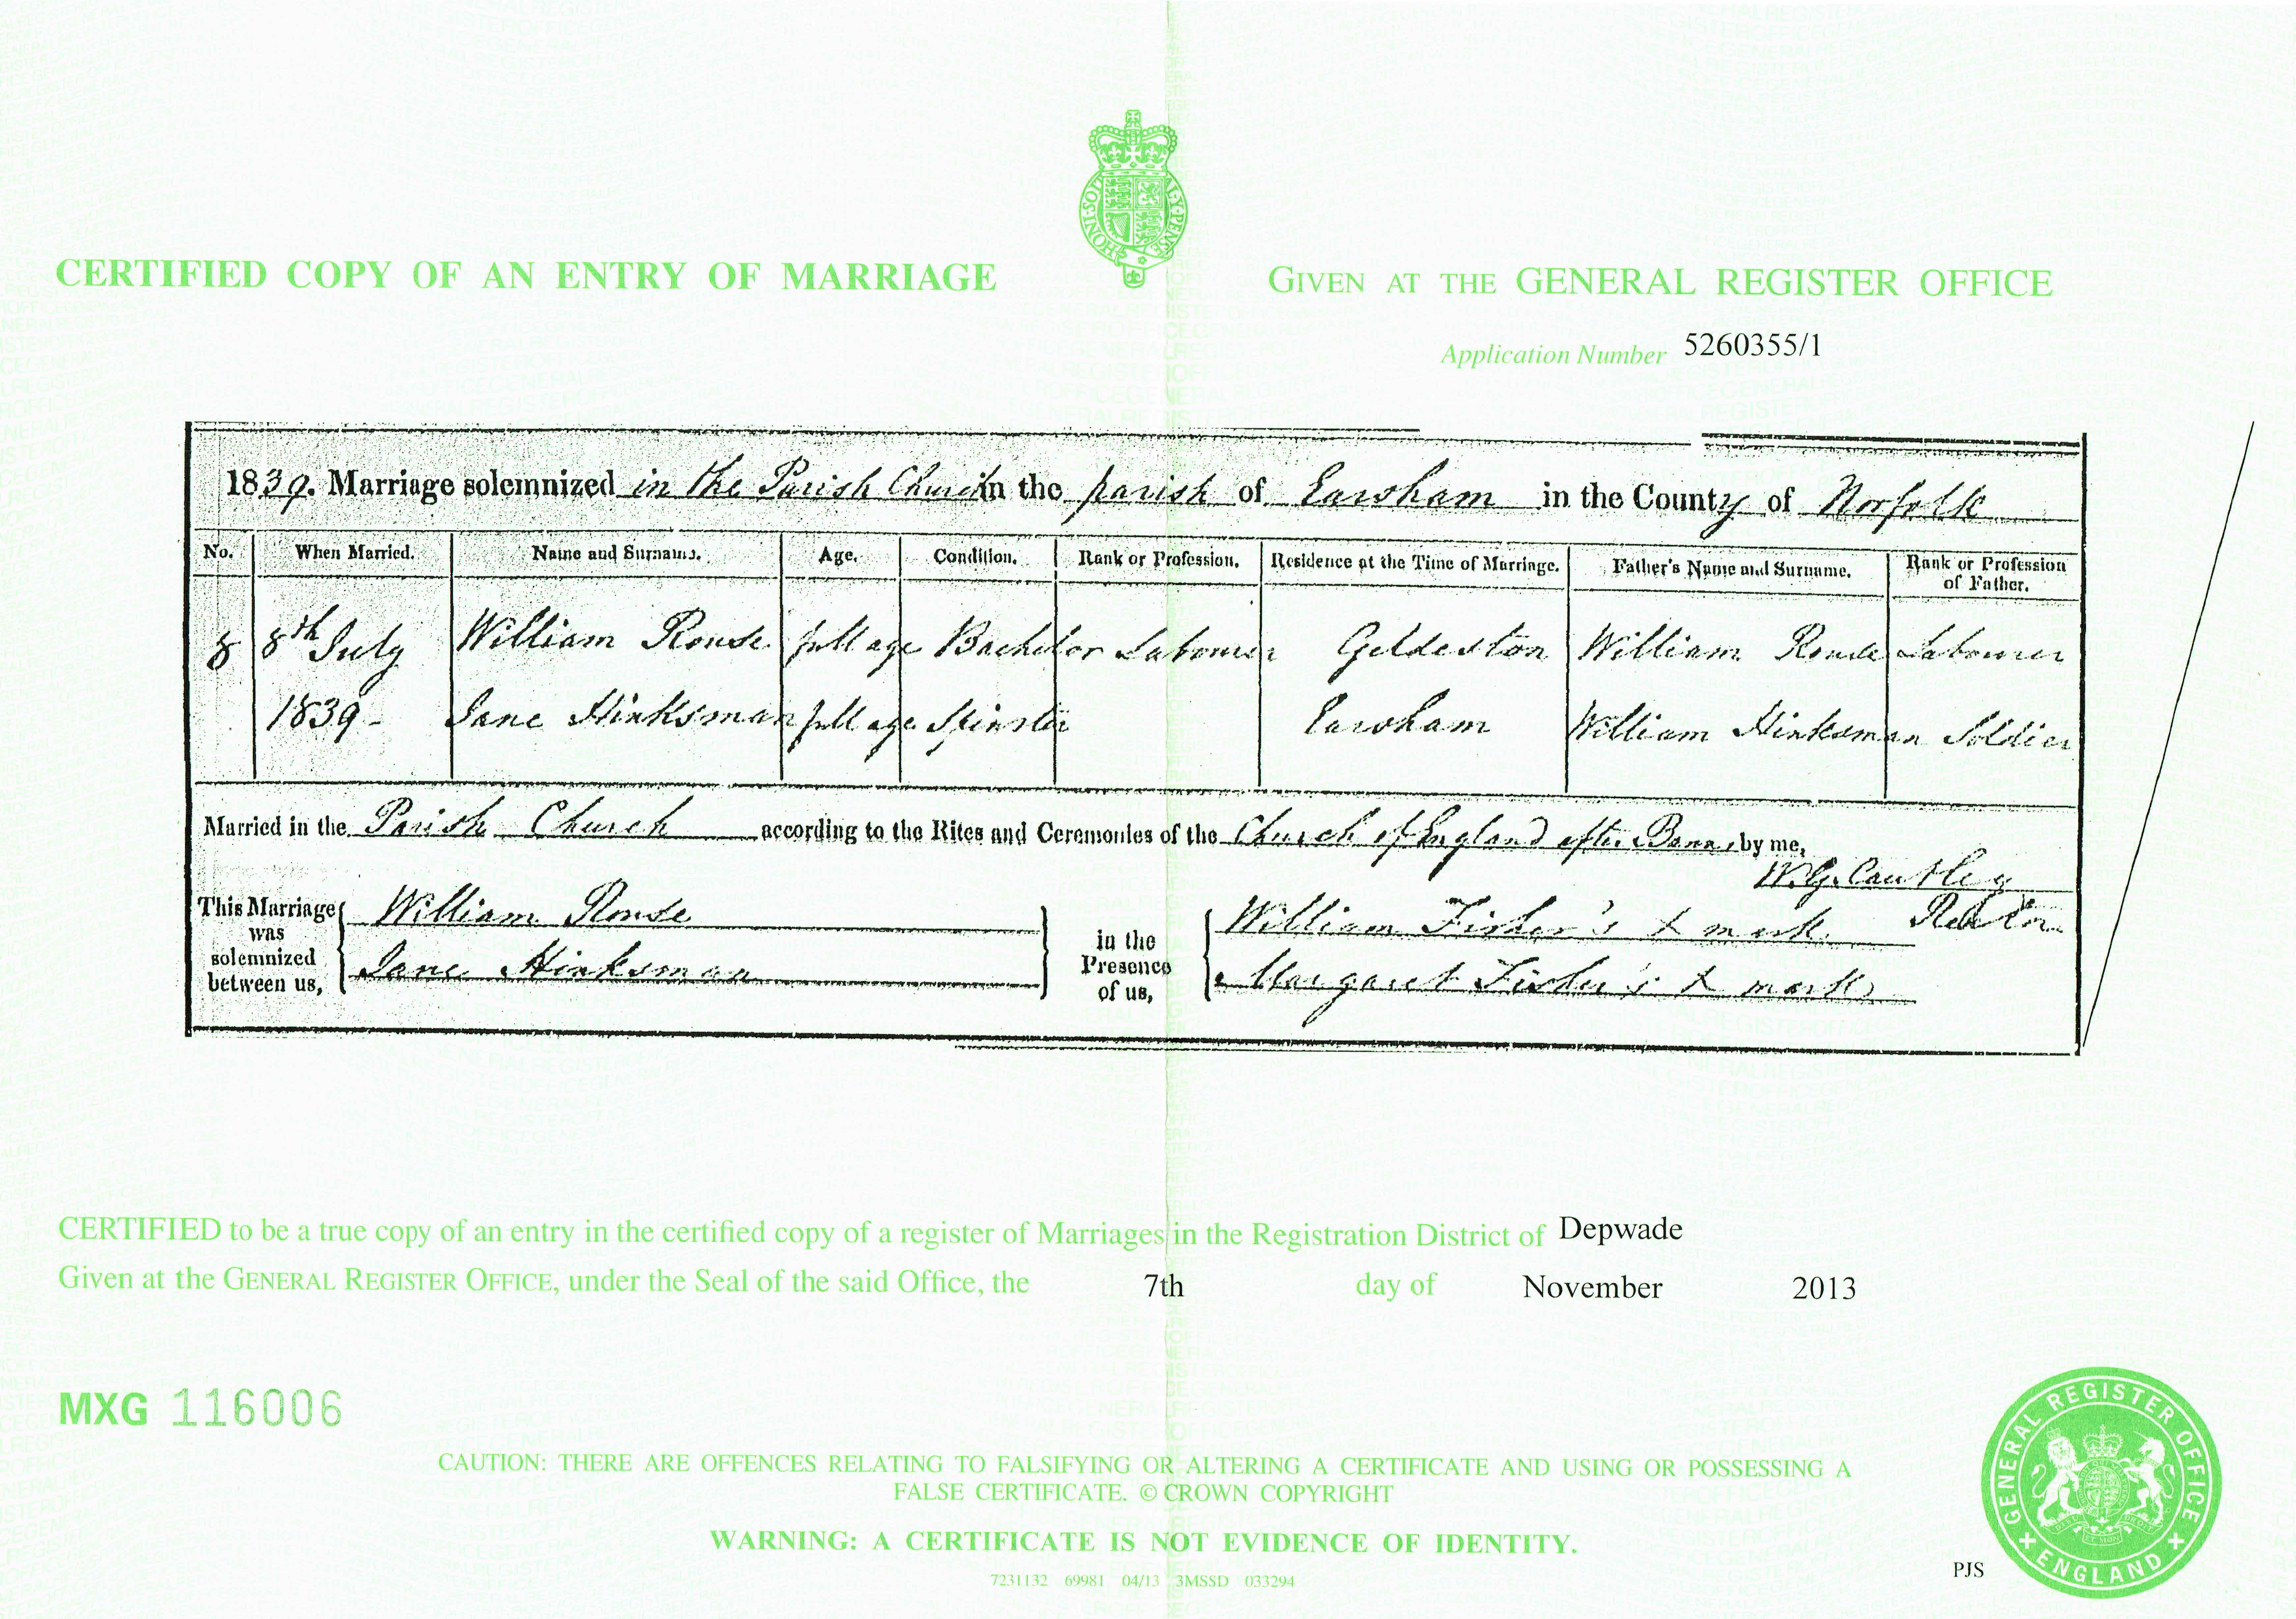 CERTIFIED COPY OF AN ENTRY OF MARRIAGE
HONI·SOIT AL·Y·PENSE
GIVEN AT THE GENERAL REGISTER OFFICE
Application Number 5260355/1
1839. Marriage solemnized in the Parish Church in the parish of Earsham in the County of Norfolk
No. When Married. Name and Surname. Age. Condition. Rank or Profession. Residence at the Time of Marriage. Father's Name and Surname. Rank or Profession of Father.
8 8th July William Rouse full age Bachelor Labourer Geldeston William Rouse Labourer
1839 - Jane Hinksman full age Spinster Earsham William Hinksman Soldier
Married in the Parish Church according to the Rites and Ceremonies of the Church of England after Banns by me,
W.G. Cautley
Rector
This Marriage was solemnized between us,
William Rouse
Jane Hinksman
in the Presence of us,
William Fisher's X mark
Margaret Fisher's X mark
CERTIFIED to be a true copy of an entry in the certified copy of a register of Marriages in the Registration District of Depwade
Given at the GENERAL REGISTER OFFICE, under the Seal of the said Office, the 7th day of November 2013
MXG 116006
CAUTION: THERE ARE OFFENCES RELATING TO FALSIFYING OR ALTERING A CERTIFICATE AND USING OR POSSESSING A
FALSE CERTIFICATE. © CROWN COPYRIGHT
WARNING: A CERTIFICATE IS NOT EVIDENCE OF IDENTITY.
7231132 69981 04/13 3MSSD 033294
PJS
GENERAL REGISTER OFFICE
ENGLAND